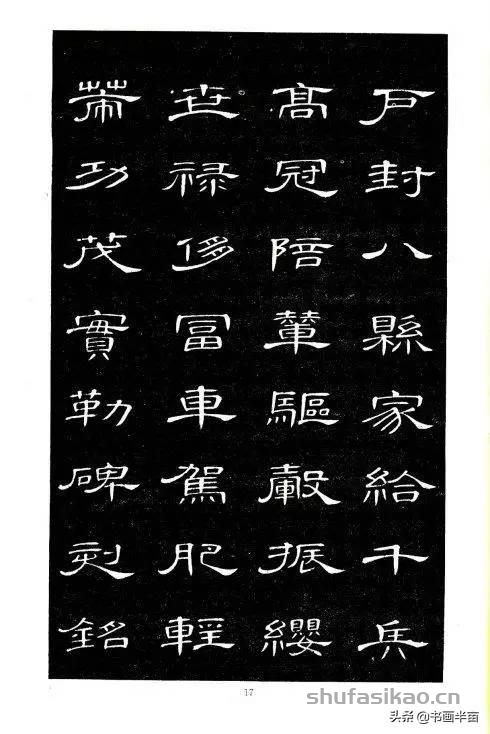 户封八縣家給千兵
髙冠陪輦驅轂振纓
世禄侈冨車駕肥輕
策功茂實勒碑刻銘
17
shufasikao.cn
头条 @书画半亩